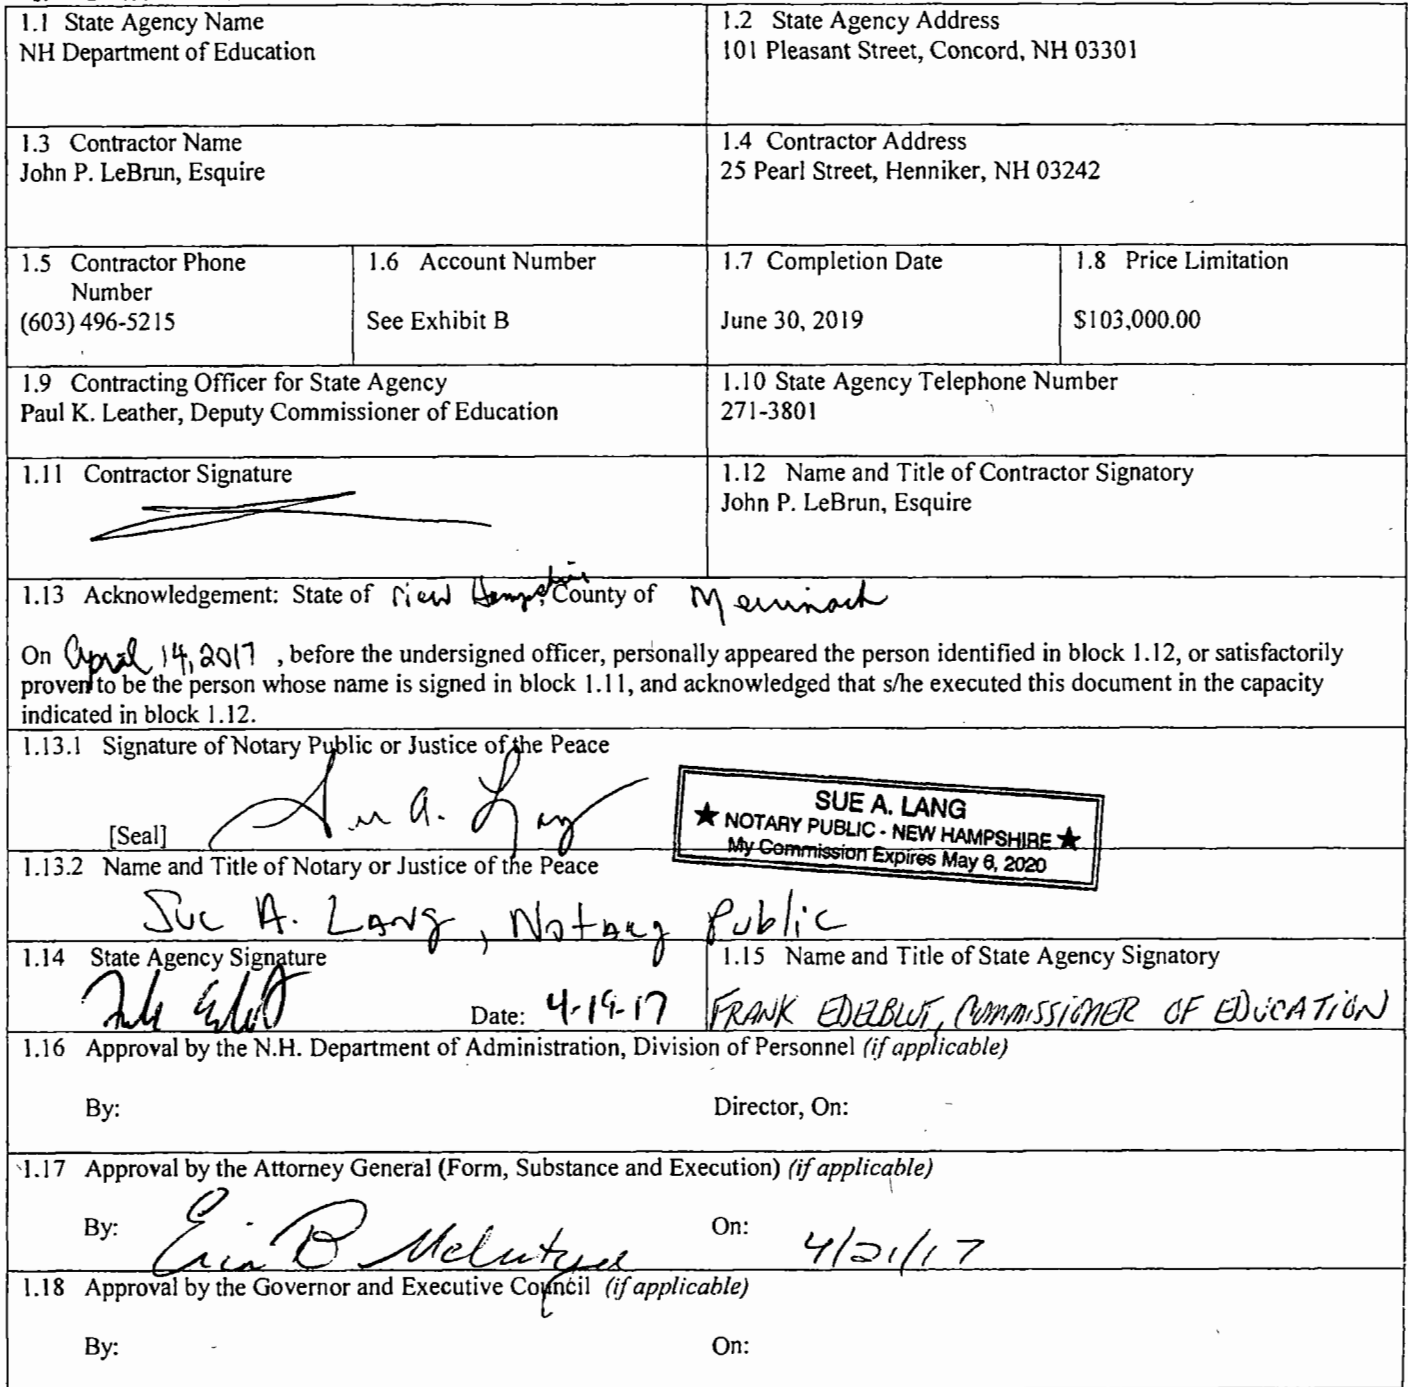 1.1 State Agency Name
NH Department of Education
1.2 State Agency Address
101 Pleasant Street, Concord, NH 03301
1.3 Contractor Name
John P. LeBrun, Esquire
1.4 Contractor Address
25 Pearl Street, Henniker, NH 03242
1.5 Contractor Phone
Number
(603) 496-5215
1.6 Account Number
See Exhibit B
1.7 Completion Date
June 30, 2019
1.8 Price Limitation
$103,000.00
1.9 Contracting Officer for State Agency
Paul K. Leather, Deputy Commissioner of Education
1.10 State Agency Telephone Number
271-3801
1.11 Contractor Signature
1.12 Name and Title of Contractor Signatory
John P. LeBrun, Esquire
1.13 Acknowledgement: State of New Hampshire, County of Merrimack
On April 14, 2017 , before the undersigned officer, personally appeared the person identified in block 1.12, or satisfactorily
proven to be the person whose name is signed in block 1.11, and acknowledged that s/he executed this document in the capacity
indicated in block 1.12.
1.13.1 Signature of Notary Public or Justice of the Peace
Sue A. Lang
[Seal]
SUE A. LANG
★ NOTARY PUBLIC - NEW HAMPSHIRE ★
My Commission Expires May 6, 2020
1.13.2 Name and Title of Notary or Justice of the Peace
Sue A. Lang, Notary Public
1.14 State Agency Signature
Date: 4-19-17
1.15 Name and Title of State Agency Signatory
FRANK EDELBLUT, COMMISSIONER OF EDUCATION
1.16 Approval by the N.H. Department of Administration, Division of Personnel (if applicable)
By:
Director, On:
1.17 Approval by the Attorney General (Form, Substance and Execution) (if applicable)
By: B McIntyre
On: 4/21/17
1.18 Approval by the Governor and Executive Council (if applicable)
By:
On: